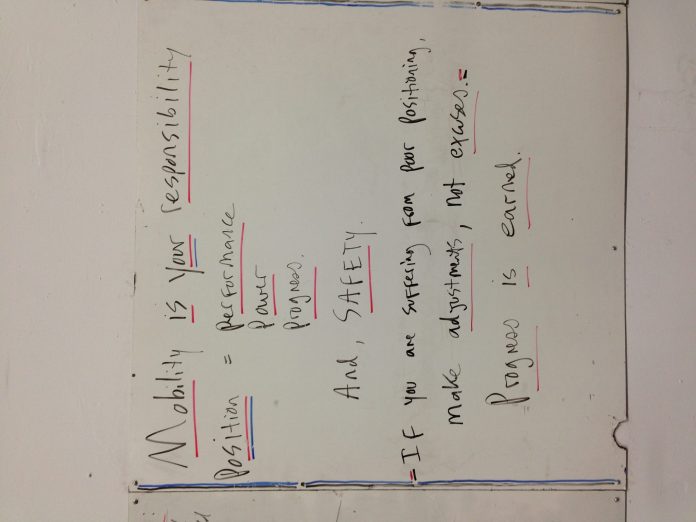 Mobility is your responsibility
Position = performance
power
progress.
And, SAFETY.
=IF you are suffering from poor positioning,
make adjustments, not excuses.=
Progress is earned.